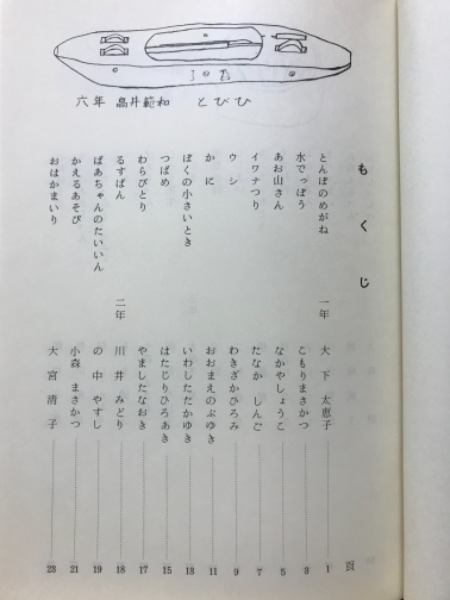 六年　高井範和　とびひ
もくじ
頁
とんぼのめがね　一年　大下太恵子　1
水でっぽう　こもりまさかつ　3
あお山さん　なかやしょうこ　5
イワナつり　たなか　しんご　7
ウシ　わきざかひろみ　9
かに　おおまえのぶゆき　11
ぼくの小さいとき　いわしただかゆき　13
つばめ　はたじりひろあき　15
わらびとり　やましたなおき　17
るすばん　二年　川井みどり　18
ばあちゃんのたいいん　の中　やすし　19
かえるあそび　小森　まさかつ　21
おはかまいり　大宮清子　23